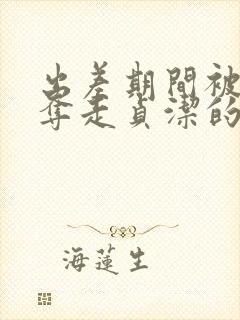 出差期間被
奪走貞潔的
海蓮生